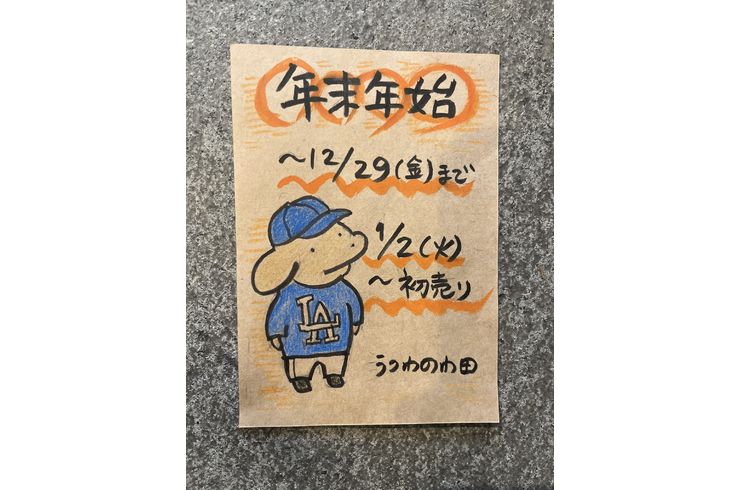 年末年始
～12/29(金)まで
1/2(火)
～初売り
うつわのわ田
LA